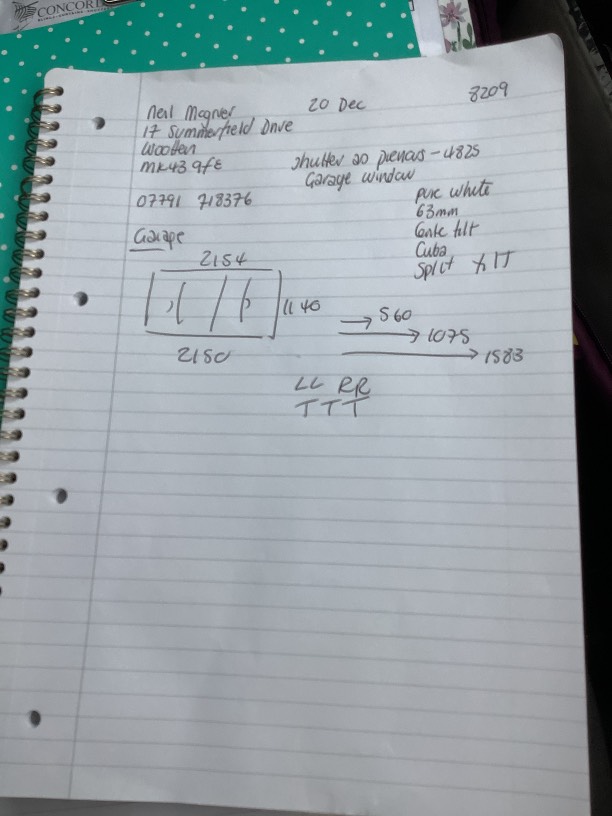 CONCORD
Neil Magner 20 Dec 8209
17 Summerfield Drive
Wootten
MK43 9FE
shutter as previous - 4825
Garage window
07791 718376
pure white
63mm
Cuba
split tilt
Garage
2154
1140
2150
560
1075
1583
LL RR
T T T